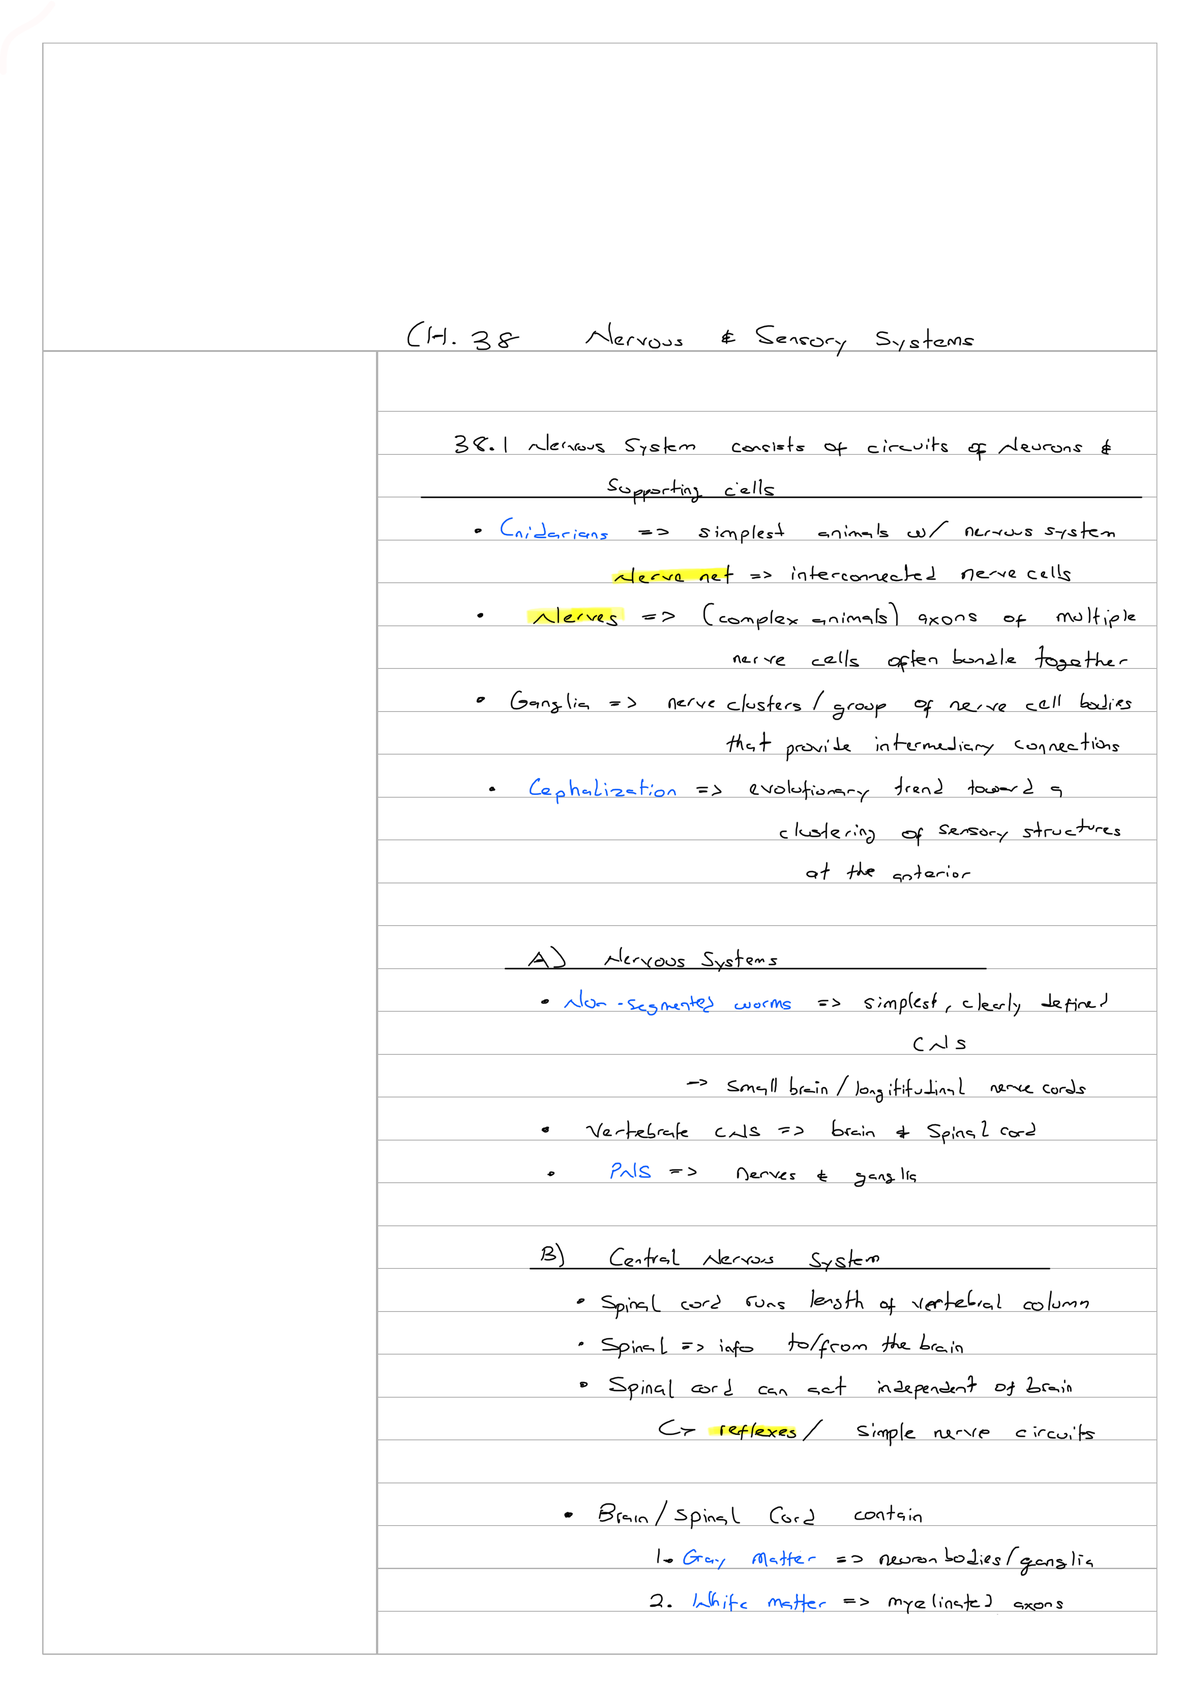 CH. 38 Nervous & Sensory Systems
38.1 Nervous System consists of circuits of Neurons &
Supporting cells
• Cnidarians => simplest animals w/ nervous system
Nerve net => interconnected nerve cells
• Nerves => (complex animals) axons of multiple
nerve cells often bundle together
• Ganglia => nerve clusters / group of nerve cell bodies
that provide intermediary connections
• Cephalization => evolutionary trend toward a
clustering of sensory structures
at the anterior
A) Nervous Systems
• Non-segmented worms => simplest, clearly defined
CNS
-> Small brain / longititudinal nerve cords
• Vertebrate CNS => brain & Spinal cord
• PNS => Nerves & ganglia
B) Central Nervous System
• Spinal cord runs length of vertebral column
• Spinal => info to/from the brain
• Spinal cord can act independent of brain
↳ reflexes / simple nerve circuits
• Brain / Spinal Cord contain
1. Gray Matter => neuron bodies / ganglia
2. White matter => myelinated axons